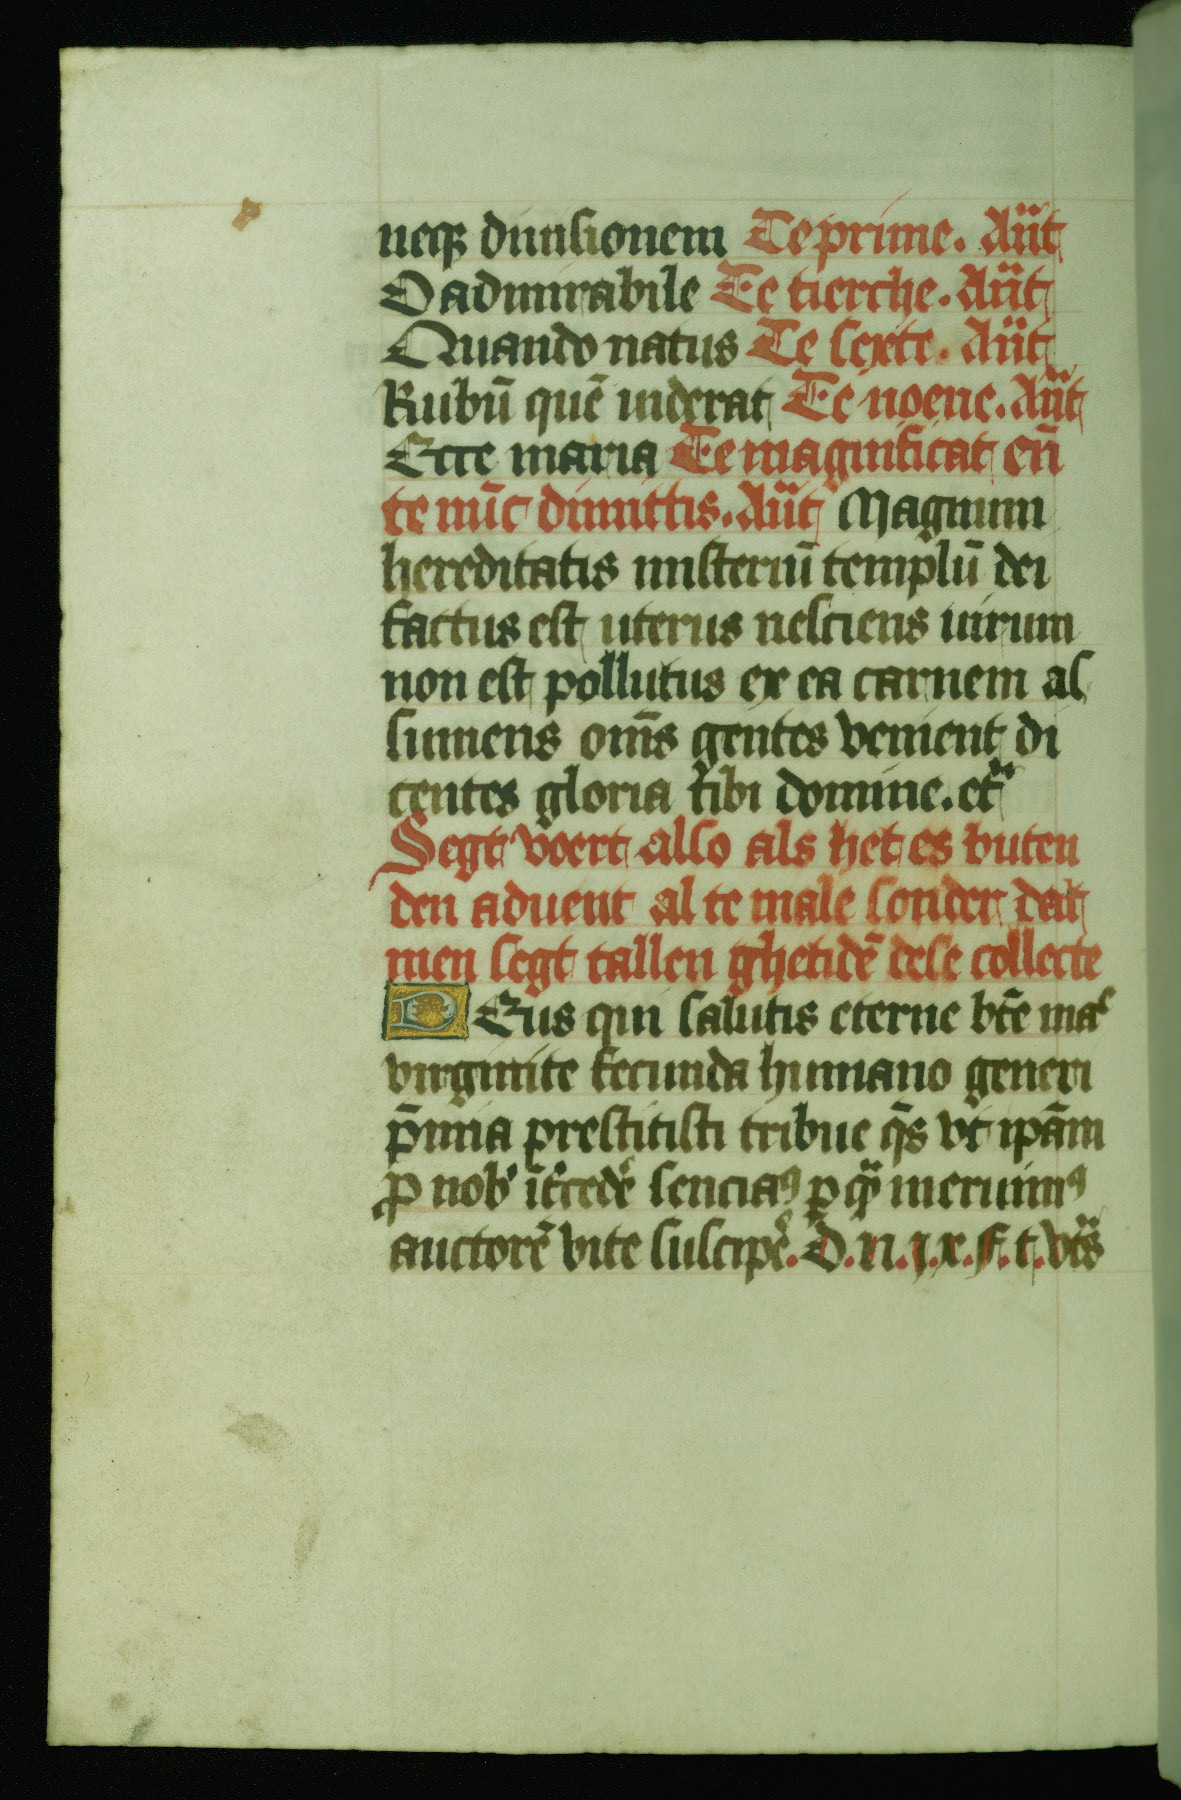 neqꝫ diuisionem Te prime. Ant
O admirabile Te tierche. Ant
Quando natus Te sexte. Ant
Rubū quē uiderat Te noene. Ant
Ecce maria Te magnificat eñ
te nūc dimittis. Ant Magnum
hereditatis misteriū templū dei
factus est uterus nesciens uirum
non est pollutus ex ea carnem as
sumens om̄s gentes venient di
centes gloria tibi domine. etr̃
Segt voert also als het es buten
den aduent al te male sonder dat
men segt tallen ghetidē dese collecte
DEus qui salutis eterne bt̄e mar
virginite fecunda humano generi
p̄mia prestitisti tribue q̄s vt ipām
ꝓ nob̾ īt̾ceđe senciaꝰ ꝑ quā meruimꝰ
auctorē vite suscip̾e. D. n. j. x. f. t. vts̃